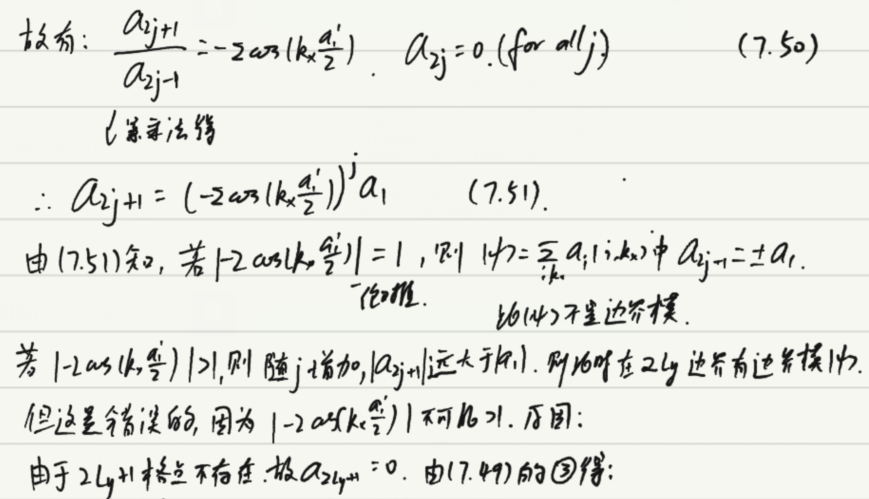 故有: \frac{a_{2j+1}}{a_{2j-1}} = -2cos(k_x \frac{a_1'}{2}). a_{2j} = 0. (for all j) (7.50)
乘法得
∴ a_{2j+1} = (-2cos(k_x \frac{a_1'}{2}))^j a_1 (7.51).
由(7.51)知, 若|-2cos(k_x \frac{a_1'}{2})| = 1, 则 |ψ> = \sum_{i,k_x} a_i|i,k_x>中 a_{2j-1} = ±a_1.
此|ψ>不是边界模.
若 |-2cos(k_x \frac{a_1'}{2})| >1, 则 随j增加, |a_{2j+1}|远大于|a_1|. 则此时在2Ly边界有边界模|ψ>.
但这是错误的, 因为 |-2cos(k_x \frac{a_1'}{2})| 不可能 >1. 原因:
由于2Ly+1格点不存在. 故 a_{2Ly+1} = 0. 由(7.49)的③得: